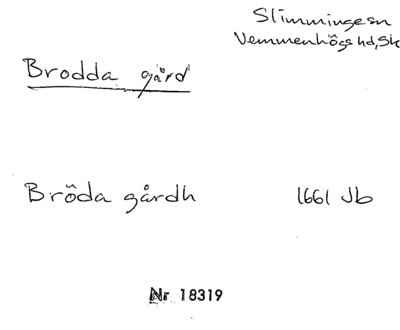 Slimminge sn
Vemmenhögs hd, Sk
Brodda gård
Bröda gårdh 1661 Jb
Nr 18319